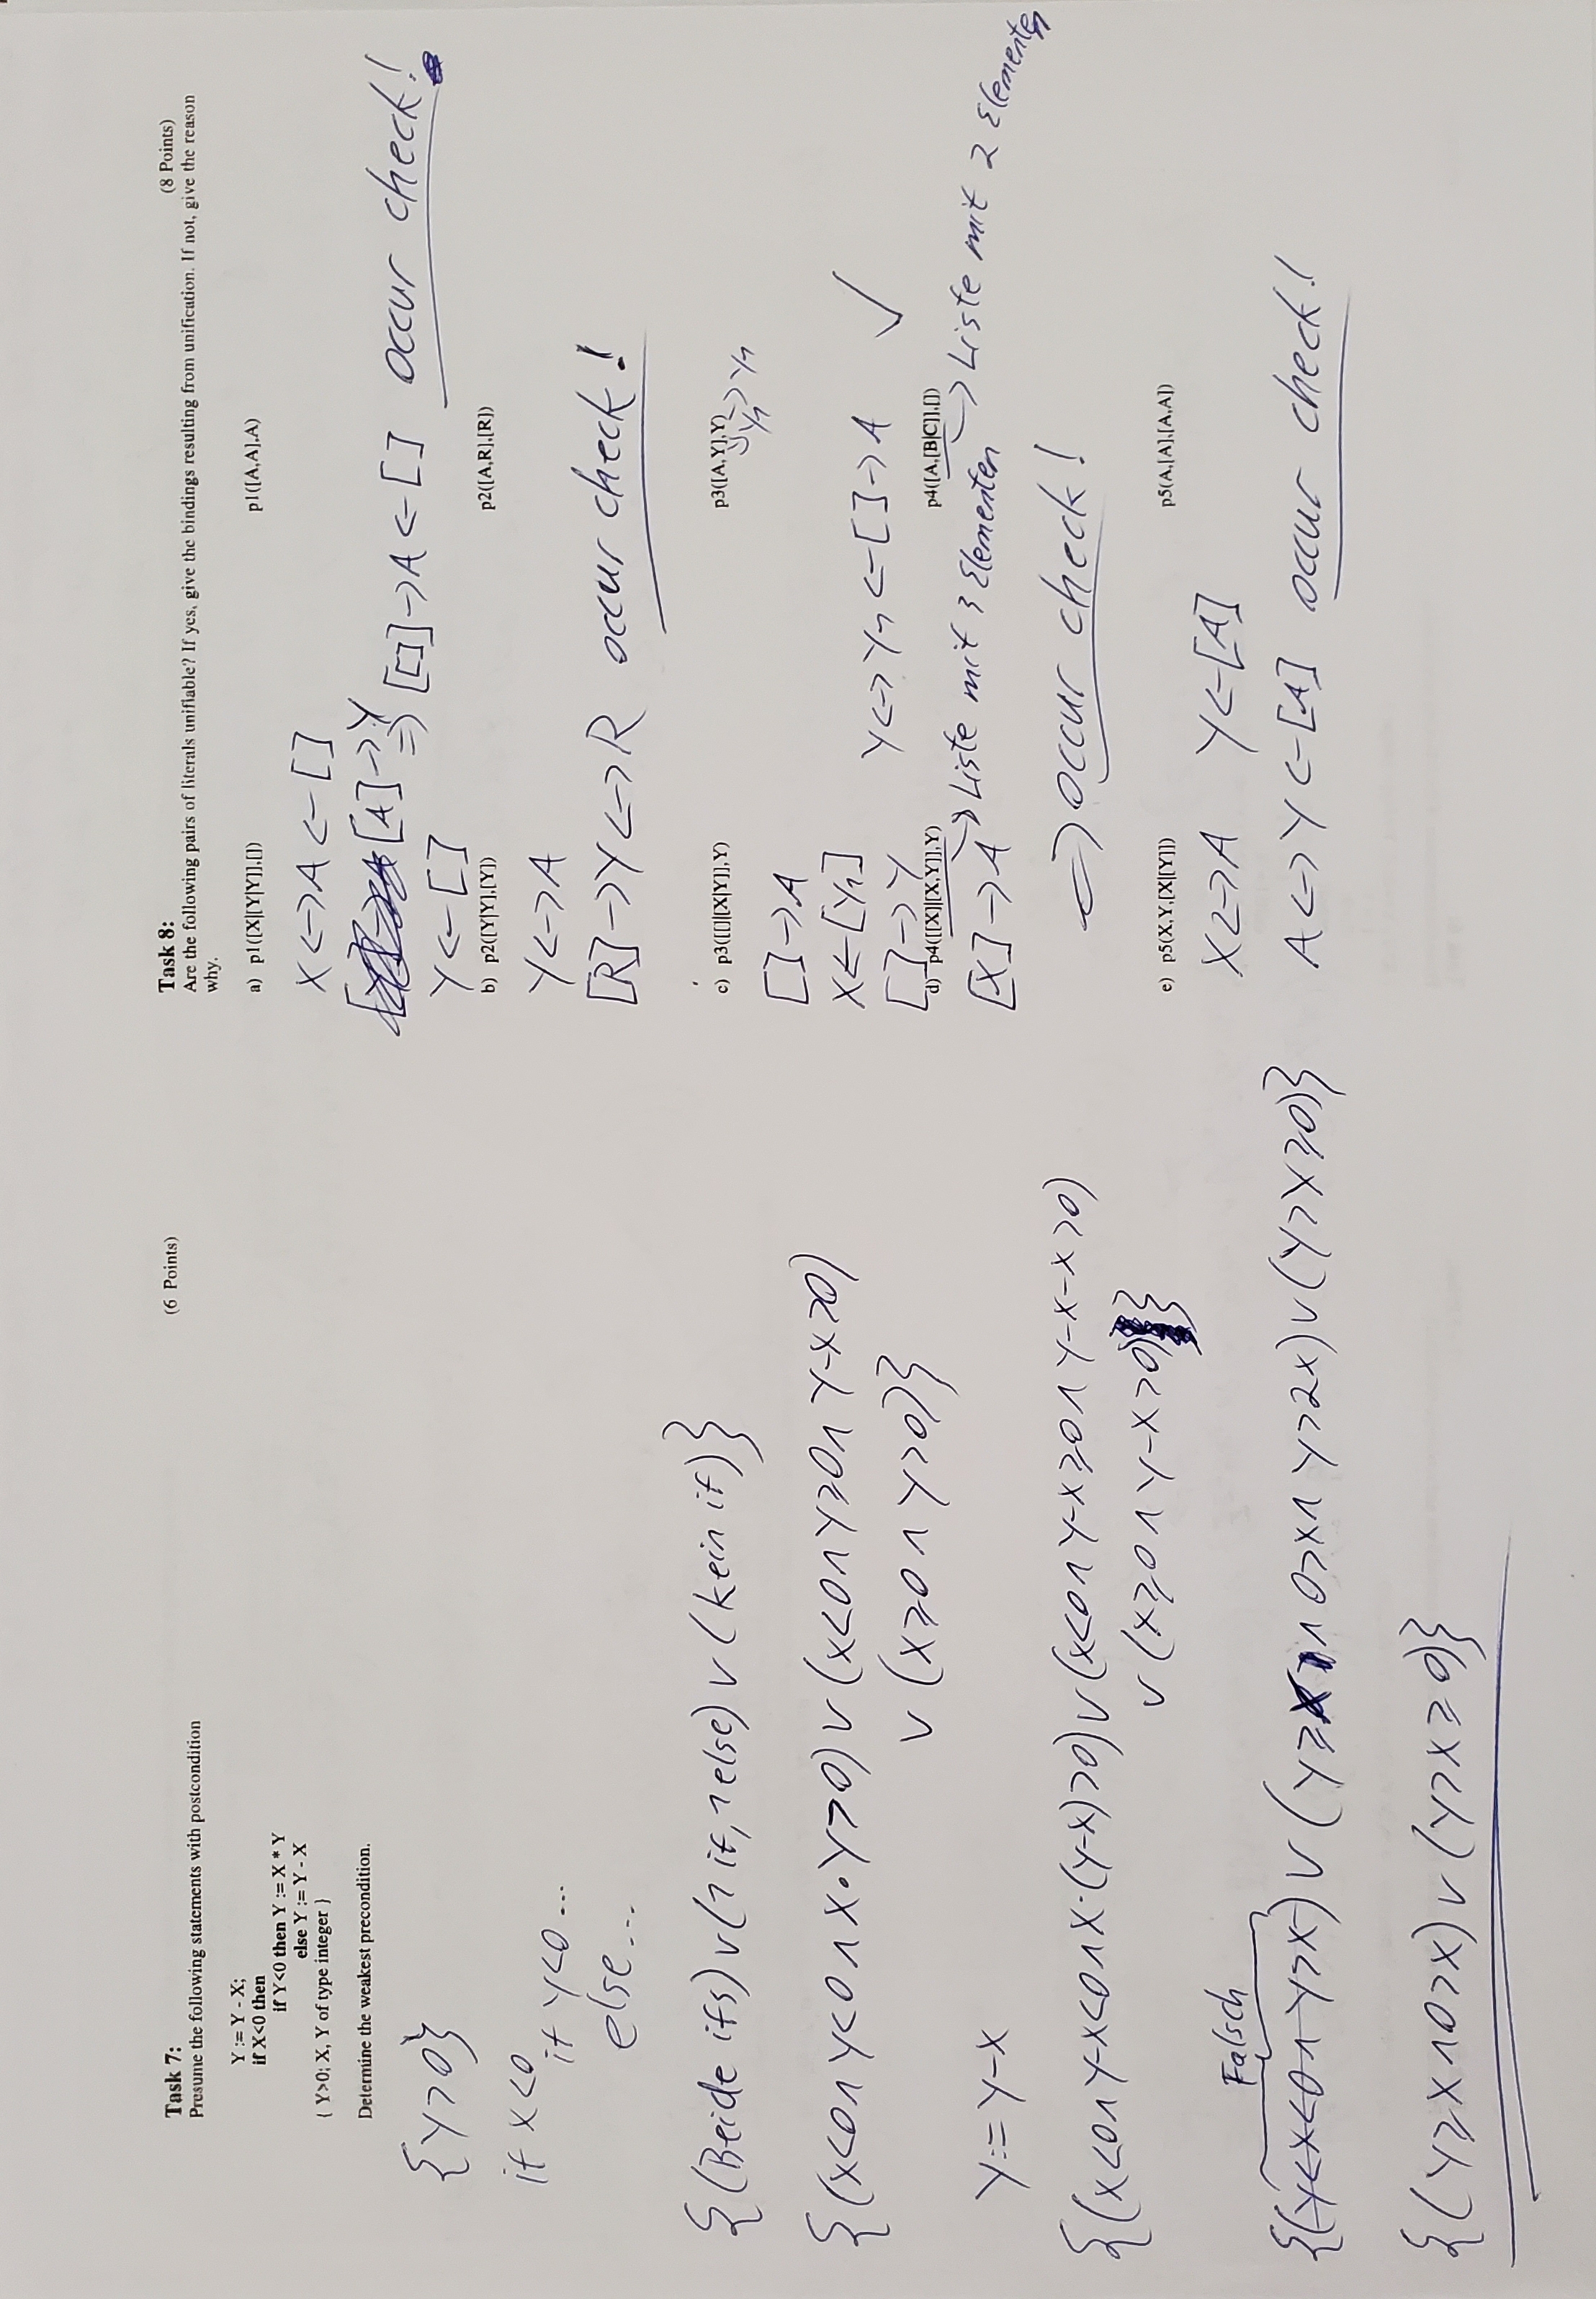 Task 7: (6 Points)
Presume the following statements with postcondition
Y := Y - X;
if X<0 then
if Y<0 then Y := X * Y
else Y := Y - X
{ Y>0; X, Y of type integer }
Determine the weakest precondition.
{Y>0}
if X<0
if Y<0 ...
else ...
{(Beide ifs) ∨ (1 if, 1 else) ∨ (kein if)}
{(X<0 ∧ Y<0 ∧ X·Y>0) ∨ (X<0 ∧ Y≥0 ∧ Y-X>0)
∨ (X≥0 ∧ Y>0)}
Y:=Y-X
{(X<0 ∧ Y-X<0 ∧ X·(Y-X)>0) ∨ (X<0 ∧ Y-X≥0 ∧ Y-X-X>0)
∨ (X≥0 ∧ Y-X>0)}
Falsch
{(Y<X<0 ∧ Y>X) ∨ (Y≥X ∧ 0>X ∧ Y>2X) ∨ (Y>X≥0)}
{(Y≥X ∧ 0>X) ∨ (Y>X≥0)}
Task 8: (8 Points)
Are the following pairs of literals unifiable? If yes, give the bindings resulting from unification. If not, give the reason
why.
a) p1([X|[Y|Y]],[]) p1([A,A],A)
X<->A<-[]
[A]->Y
=> [[]]->A<-[] occur check!
Y<-[]
b) p2([Y|Y],[Y]) p2([A,R],[R])
Y<->A
[R]->Y<->R occur check!
c) p3([[]|[X|Y]],Y) p3([A,Y],Y)
Y1 -> Y1
[]->A
X<-[Y1]
[]->Y Y<->Y1<-[]->A ✓
d) p4([[X]|[X,Y]],Y) p4([A,[B|C]],[])
[X]->A -> Liste mit 3 Elementen -> Liste mit 2 Elementen
=> occur check!
e) p5(X,Y,[X|[Y]]) p5(A,[A],[A,A])
X<->A Y<-[A]
A<->Y<-[A] occur check!